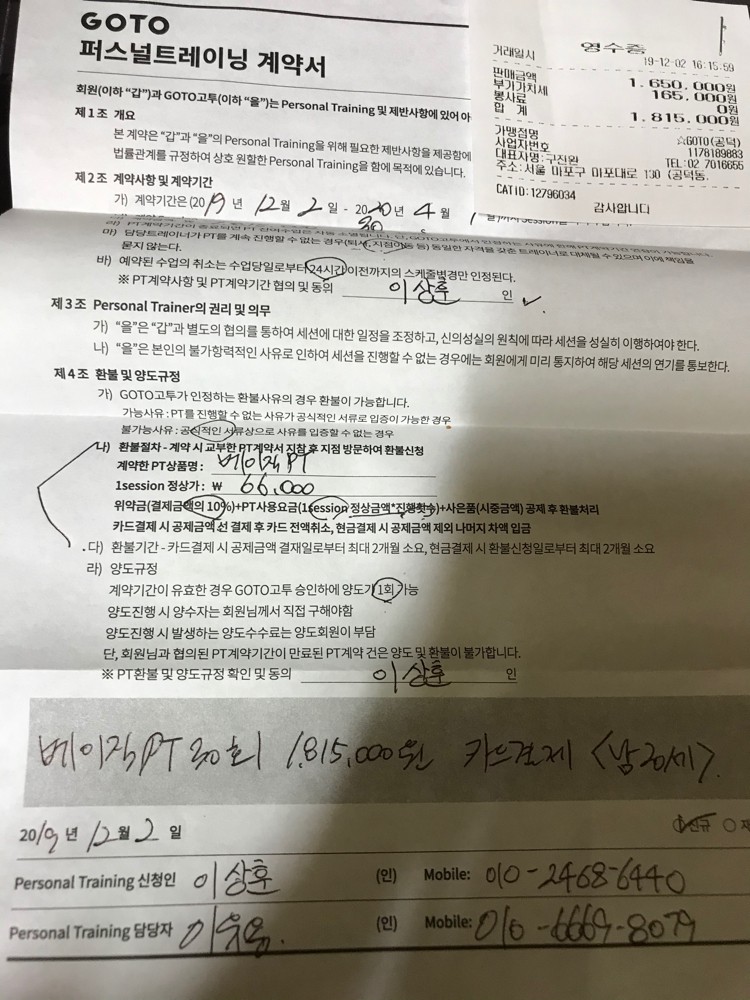 GOTO
퍼스널트레이닝 계약서
회원(이하 “갑”)과 GOTO고투(이하 “을”)는 Personal Training 및 제반사항에 있어 아
제1조 개요
본 계약은 “갑”과 “을”의 Personal Training을 위해 필요한 제반사항을 제공함에
법률관계를 규정하여 상호 원할한 Personal Training을 함에 목적에 있습니다.
제2조 계약사항 및 계약기간
가) 계약기간은 (2019년 12월 2일 - 2020년 4월 1
30
마) 담당트레이너가 PT를 계속 진행할 수 없는 경우(퇴사, 지점이동 등) 동일한 자격을 갖춘 트레이너로 대체될 수 있으며 이에 책임을
묻지 않는다.
바) 예약된 수업의 취소는 수업당일로부터 24시간 이전까지의 스케줄변경만 인정된다.
※ PT계약사항 및 PT계약기간 협의 및 동의 이상훈 인
제3조 Personal Trainer의 권리 및 의무
가) “을”은 “갑”과 별도의 협의를 통하여 세션에 대한 일정을 조정하고, 신의성실의 원칙에 따라 세션을 성실히 이행하여야 한다.
나) “을”은 본인의 불가항력적인 사유로 인하여 세션을 진행할 수 없는 경우에는 회원에게 미리 통지하여 해당 세션의 연기를 통보한다.
제4조 환불 및 양도규정
가) GOTO고투가 인정하는 환불사유의 경우 환불이 가능합니다.
가능사유 : PT를 진행할 수 없는 사유가 공식적인 서류로 입증이 가능한 경우
불가능사유 : 공식적인 서류상으로 사유를 입증할 수 없는 경우
나) 환불절차 - 계약 시 교부한 PT계약서 지참 후 지점 방문하여 환불신청
계약한 PT상품명 : 베이직PT
1session 정상가 : ₩ 66,000
위약금(결제금액의 10%)+PT사용요금(1session 정상금액*진행횟수)+사은품(시중금액) 공제 후 환불처리
카드결제 시 공제금액 선 결제 후 카드 전액취소, 현금결제 시 공제금액 제외 나머지 차액 입금
다) 환불기간 - 카드결제 시 공제금액 결재일로부터 최대 2개월 소요, 현금결제 시 환불신청일로부터 최대 2개월 소요
라) 양도규정
계약기간이 유효한 경우 GOTO고투 승인하에 양도가 1회 가능
양도진행 시 양수자는 회원님께서 직접 구해야함
양도진행 시 발생하는 양도수수료는 양도회원이 부담
단, 회원님과 협의된 PT계약기간이 만료된 PT계약 건은 양도 및 환불이 불가합니다.
※ PT환불 및 양도규정 확인 및 동의 이상훈 인
베이직PT 30회 1,815,000원 카드결제 <남30세>.
2019년 12월 2일
신규
Personal Training 신청인 이상훈 (인) Mobile: 010-2468-6440
Personal Training 담당자 (인) Mobile: 010-6669-8079
영수증
거래일시 19-12-02 16:15:59
판매금액 1,650,000원
부가가치세 165,000원
봉사료 0원
합 계 1,815,000원
가맹점명 ☆GOTO(공덕)
사업자번호 1178189883
대표자명:구진완 TEL:02 7016655
주소:서울 마포구 마포대로 130 (공덕동,
CATID:12796034
감사합니다